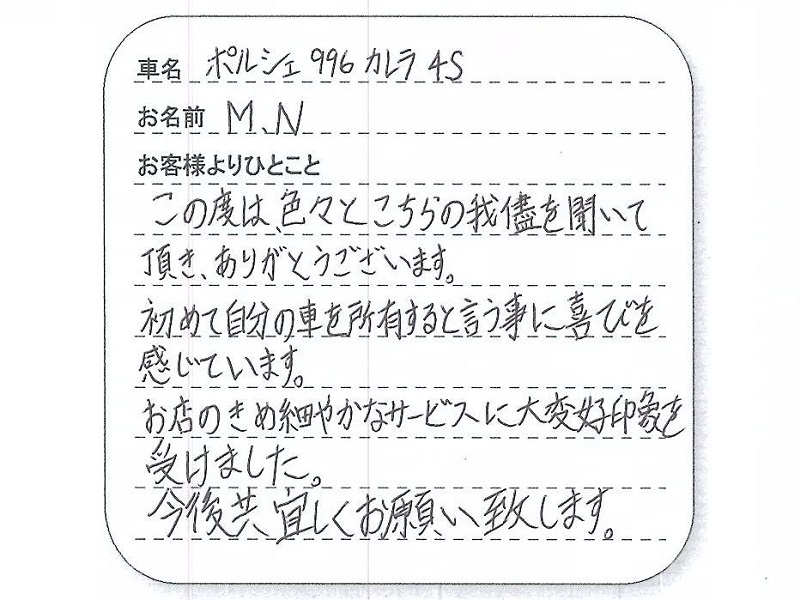 車名 ポルシェ 996 カレラ 4S
お名前 M、N
お客様よりひとこと
この度は、色々とこちらの我儘を聞いて
頂き、ありがとうございます。
初めて自分の車を所有すると言う事に喜びを
感じています。
お店のきめ細やかなサービスに大変好印象を
受けました。
今後共、宜しくお願い致します。